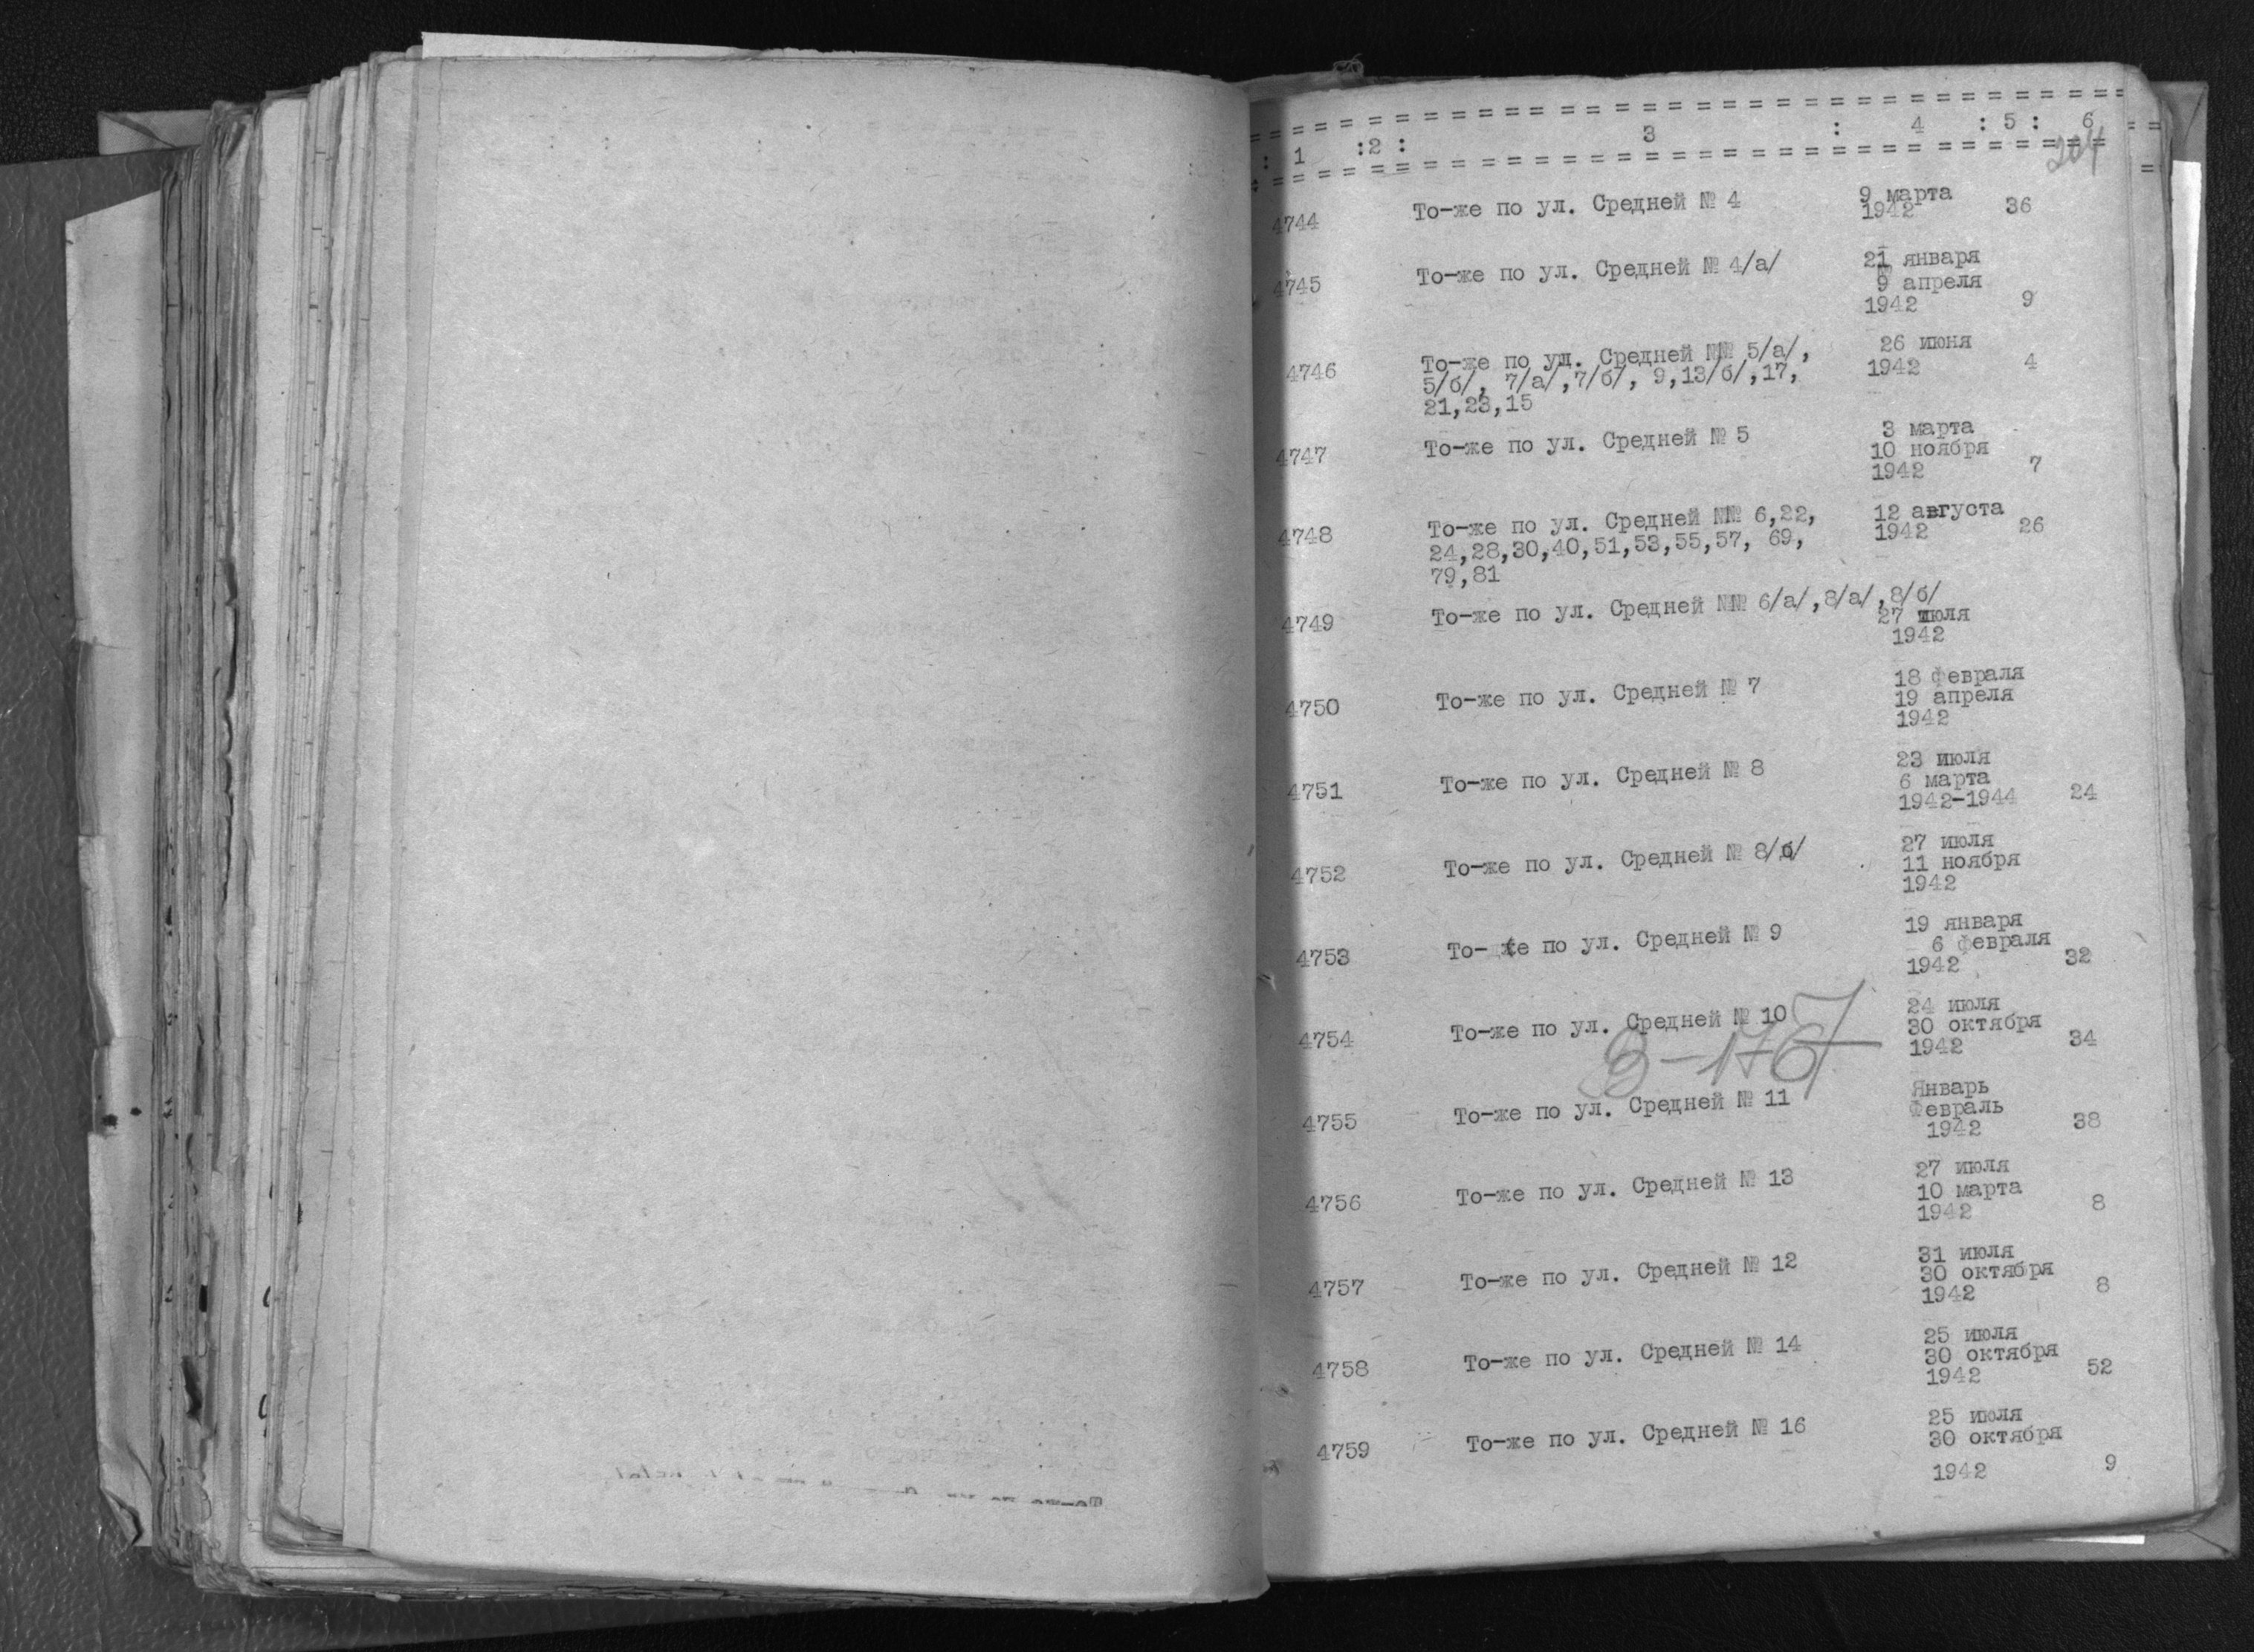 : 1 :2 : 3 : 4 : 5 : 6
204
4744 То-же по ул. Средней № 4 9 марта
1942 36
4745 То-же по ул. Средней № 4/а/ 21 января
9 апреля
1942 9
4746 То-же по ул. Средней №№ 5/а/, 26 июня
5/б/, 7/а/,7/б/, 9,13/б/,17, 1942 4
21,23,15
4747 То-же по ул. Средней № 5 3 марта
10 ноября
1942 7
4748 То-же по ул. Средней №№ 6,22, 12 августа
24,28,30,40,51,53,55,57, 69, 1942 26
79,81
4749 То-же по ул. Средней №№ 6/а/,8/а/,8/б/
27 июля
1942
4750 То-же по ул. Средней № 7 18 февраля
19 апреля
1942
4751 То-же по ул. Средней № 8 23 июля
6 марта
1942-1944 24
4752 То-же по ул. Средней № 8/б/ 27 июля
11 ноября
1942
4753 То-же по ул. Средней № 9 19 января
6 февраля
1942 32
4754 То-же по ул. Средней № 10 24 июля
30 октября
1942 34
4755 То-же по ул. Средней № 11 Январь
Февраль
1942 38
4756 То-же по ул. Средней № 13 27 июля
10 марта
1942 8
4757 То-же по ул. Средней № 12 31 июля
30 октября
1942 8
4758 То-же по ул. Средней № 14 25 июля
30 октября
1942 52
4759 То-же по ул. Средней № 16 25 июля
30 октября
1942 9